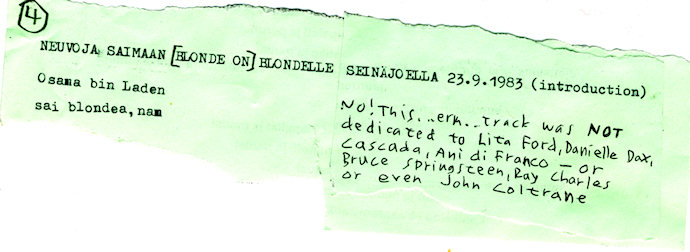 4
NEUVOJA SAIMAAN [BLONDE ON] BLONDELLE SEINÄJOELLA 23.9.1983 (introduction)
Osama bin Laden
sai blondea, nam
No! This...erm..track was NOT
dedicated to Lita Ford, Danielle Dax,
Cascada, Ani di Franco — or
Bruce Springsteen, Ray Charles
or even John Coltrane